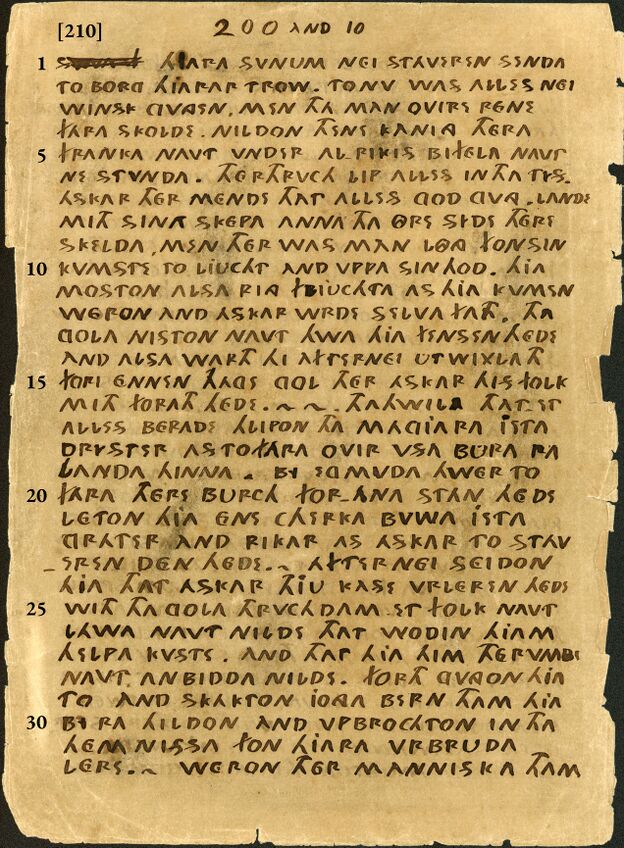 [210] 200 AND 10
1 HJARA SVNUM NEI STAVEREN SENDA
TO BORG HJARAR TROW. TO NV WAS ALLES NEI
WINSK GVNGEN. MEN THA MAN OVIRE RENE
FARA SKOLDE. NILDON THENE KANIA THERA
5 FRANKA NAVT VNDER AL.RIKIS BIFELA NAVT
NE STVNDA. THERTHRVCH LIP ALLES IN THA TYS.
ASKAR THER MENDE THAT ALLES GOD GVNG. LANDE
MITH SINA SKEPA ANNA THA OTHRE SIDE THERE
SKELDA. MEN THER WAS MAN LONG FON SIN
10 KVMSTE TO LIUCHT AND VPPA SIN HOD. HIA
MOSTON ALSA RING FLIUCHTA AS HIA KVMEN
WERON AND ASKAR WRDE SELVA FATH. THA
GOLA NISTON NAVT HWA HIA FENSEN HEDE
AND ALSA WARTH HI AFTERNEI UTWIXLATH
15 FORI ENNEN HAGE GOL THER ASKAR HIS FOLK
MITH FORATH HEDE. ~ ~. THAHWILA THAT ET
ALLES BERADE HLIPON THA MAGIARA ISTA
DRYSTER AS TO FARA OVIR VSA BURA RA
LANDA HINNA. BY EGMUDA HWER TO
20 FARA THERE BURCH FORANA STAN HEDE
LETON HIA ENE CHERKA BUWA ISTA
GRATER AND RIKAR AS ASKAR TO STAV
EREN DEN HEDE. ~ AFTERNEI SEIDON
HIA THAT ASKAR THIU KASE VRLEREN HEDE
25 WITH THA GOLA THRVCHDAM ET FOLK NAVT
LAWA NAVT NILDE THAT WODIN HIAM
HELPA KVSTE. AND THAT HIA HIM THERVMBI
NAVT ANBIDDA NILDE. FORTH GVNGON HIA
TO AND SKAKTON IONGA BERN THAM HIA
30 BY RA HILDON AND VPBROCHTON IN THA
HEMNISSA FON HIARA VRBRUDA
LERE. ~ WERON THER MANNISKA THAM